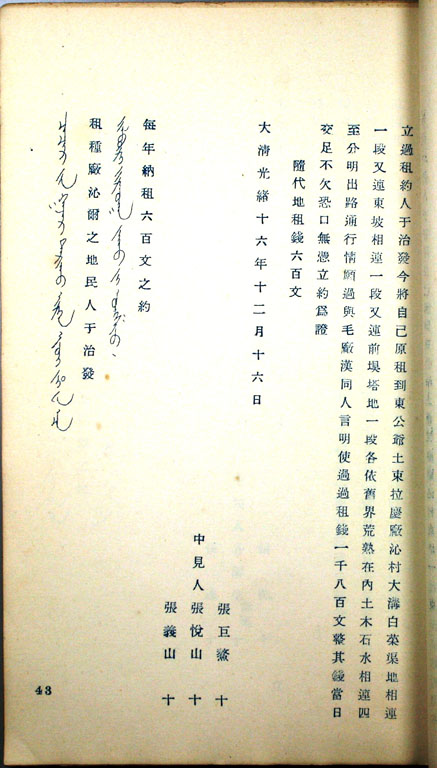 立過租約人于治發今將自己原租到東公爺土東拉處廠沁村大溝白菜渠地相連
一段又連東坡相連一段又連前堤塔地一段各依舊界荒熟在內土木石水相連四
至分明出路通行情願過與毛廠漢同人言明使過過租錢一千八百文整其錢當日
交足不欠恐口無憑立約爲證
隨代地租錢六百文
大清光緒十六年十二月十六日
張巨鰲 十
中見人 張悅山 十
張義山 十
每年納租六百文之約
租種廠沁爾之地民人于治發
43